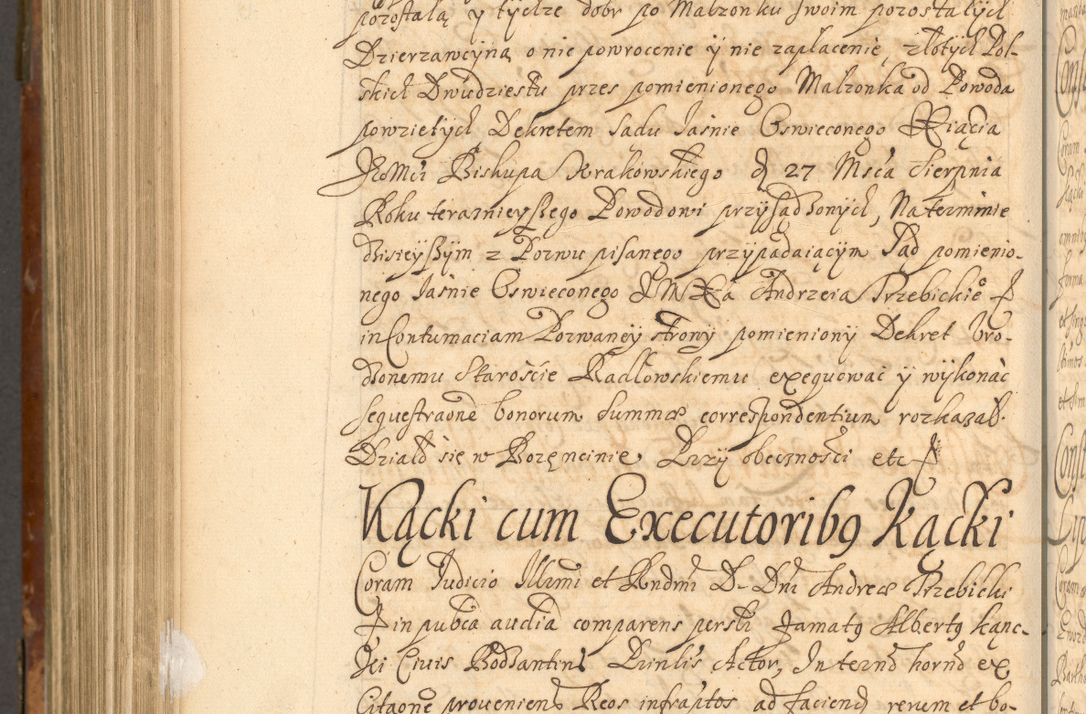 pozostałą y tychze dobr po Małzonku swoim pozostałych
Dzierzawcyną o nie powrocenie y nie zapłacenie złotych Pol-
skich Dwudziestu przes pomienionego Małzonka od Powoda
powzietych Dekretem sądu Jaśnie Oswieconego Xiążcia
JeoMci Biskupa Krakowskiego d 27 Msca Sierpnia
Roku terasnieyszego Powodowi przysądzonych, Na terminie
dzisieyszym z Pozwu pisanego przypadaiącym Sąd pomienio-
nego Jaśnie Oswieconego JMXa Andrzeia Trzebickie
in Contumaciam Pozwaney strony pomieniony Dekret Uro-
dzonemu Staroście Radłowskiemu exequowac y wykonać
sequestraone bonorum summae correspondentium rozkazał.
Działo się w Bozęncinie Przy obecznosci etc
Kącki cum Executoribq Kącki
Coram Judicio Illrmi et Rndmi D. Dni Andreae Trzebicki
in pubca audia comparens persli Famatq Albertq Kanc-
Jei Civis Bodzantinẽ Prinlis Actor, In termo horno ex
Citaone proveniens Reos infraptos ad faciend rerum et bo-